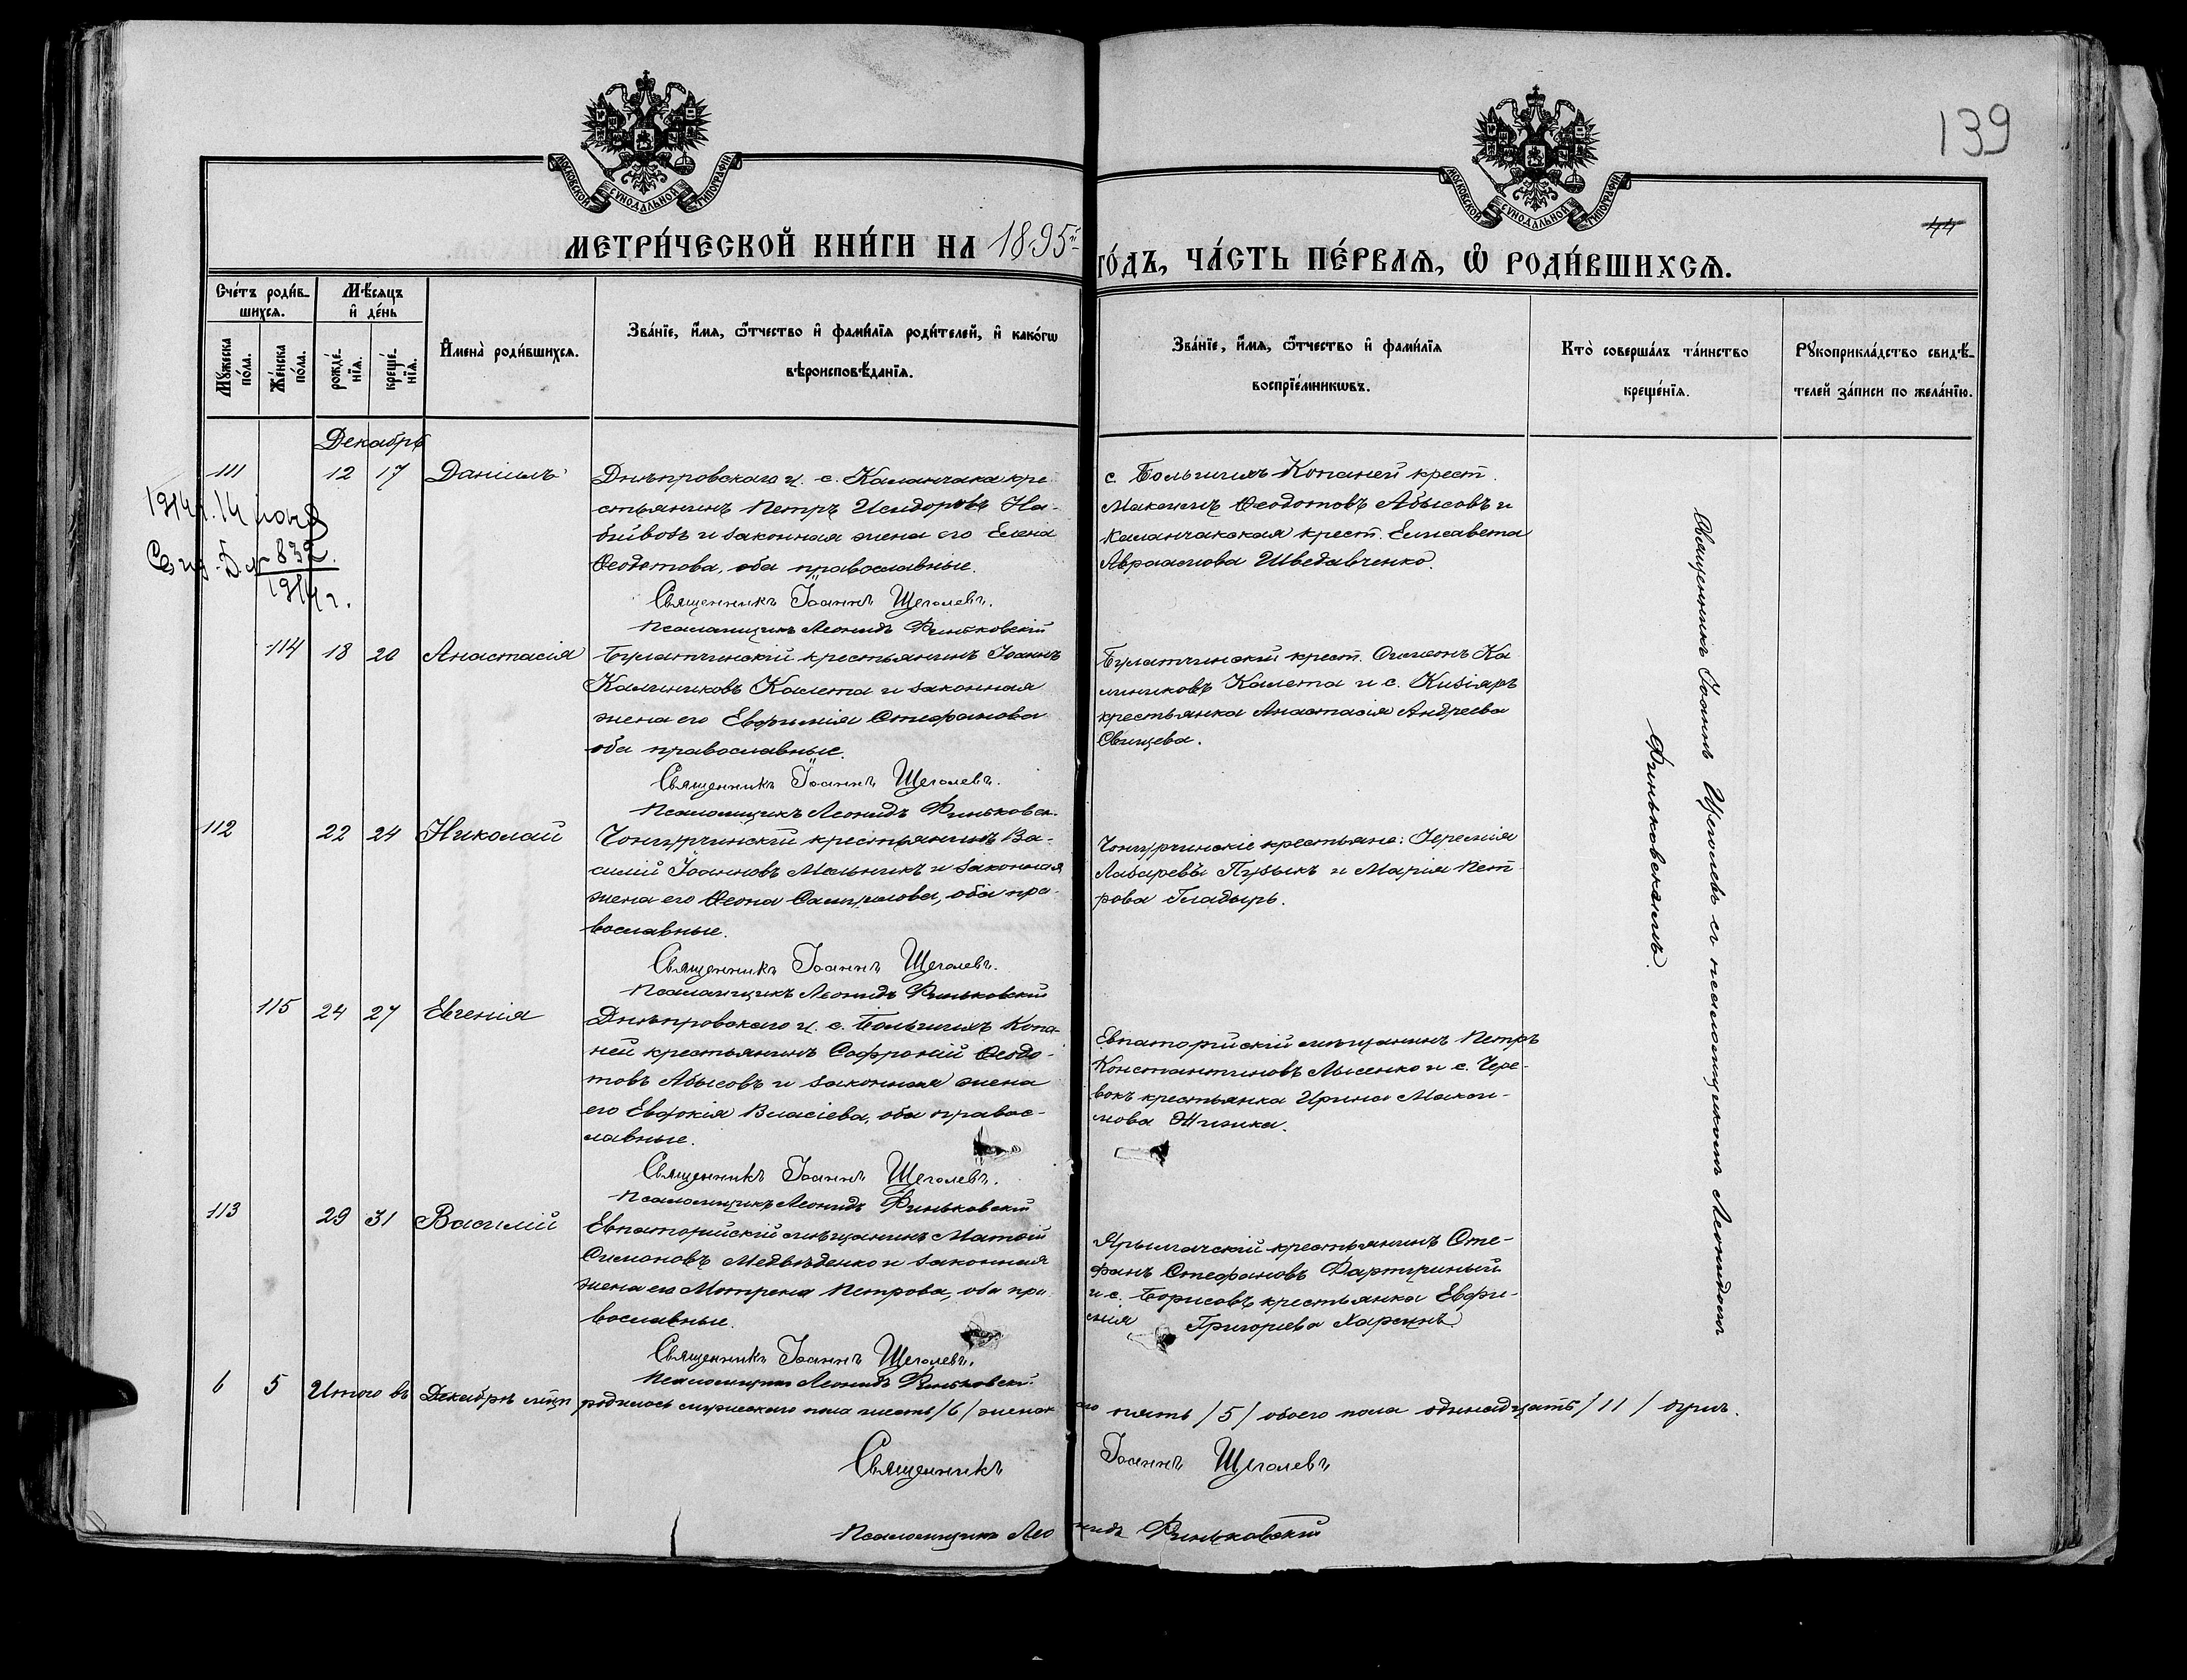 139
44
МОСКОВСКОЙ СѴНОДАЛЬНОЙ ТИПОГРАФІИ
МОСКОВСКОЙ СѴНОДАЛЬНОЙ ТИПОГРАФІИ
МЕТРИ́ЧЕСКОЙ КНИ́ГИ НА 1895й ГО́ДЪ, ЧА́СТЬ ПЕ́РВАѦ, Ѽ РОДИ́ВШИХСѦ.
Счётъ роди́в-
шихсѧ.
Мѣ́сѧцъ
и҆ де́нь
Мꙋжеска
по́ла.
Же́нска
по́ла.
рожде́-
нїѧ.
креще́-
нїѧ.
И҆мена̀ роди́вшихсѧ.
Зва́нїе, и҆́мѧ, ѻ҆́тчество и҆ фами́лїѧ роди́телей, и҆ како́гѡ
вѣроисповѣ́данїѧ.
Зва́нїе, и҆́мѧ, ѻ҆́тчество и҆ фами́лїѧ
воспрїе́мникѡвъ.
Кто̀ соверша́лъ та́инство
креще́нїѧ.
Рꙋкоприкла́дство свидѣ́-
телей за́писи по жела́нїю.
Декабрь
111 12 17 Даніилъ
Днѣпровскаго у. с. Каланчака кре-
стьянинъ Петръ Исидоровъ На-
бивобъ и законная жена его Елена
Ѳеодотова, оба православные.
Священникъ Іоаннъ Щеголевъ.
Псаломщикъ Леонидъ Финьковскій
с. Большихъ Копаней крест.
Максимъ Ѳеодотовъ Абысовъ и
каланчакская крест. Елисавета
Авраамова Шведавченко.
1914 г. 14
832
1914 г.
114 18 20 Анастасія
Булатчинскій крестьянинъ Іоаннъ
Калиниковъ Калета и законная
жена его Евфимія Стефанова
оба православные.
Священникъ Іоаннъ Щеголевъ.
Псаломщикъ Леонидъ Финьковск.
Булатчинскій крест. Симеонъ Ка
линиковъ Калета и с. Кизіяръ
крестьянка Анастасія Андреева
Свищева.
112 22 24 Николай
Чонгурчинскій крестьянинъ Ва-
силій Іоанновъ Мельникъ и законная
жена его Ѳеона Самуилова, оба пра-
вославные.
Священникъ Іоаннъ Щеголевъ.
Псаломщикъ Леонидъ Финьковскій
Чонгурчинскіе крестьяне: Іеремія
Лазаревъ Пузыкъ и Марія Пет-
рова Гладырь.
115 24 27 Евгенія
Днѣпровскаго у. с. Большихъ Копа-
ней крестьянинъ Софроній Ѳеодо-
товъ Абысовъ и законная жена
его Евдокія Власіева, оба правос-
лавные.
Священникъ Іоаннъ Щеголевъ.
Псаломщикъ Леонидъ Финьковскій
Евпаторійскій мѣщанинъ Петръ
Константиновъ Лысенко и с. Чере-
вокъ крестьянка Ирина Макси-
мова Жижка.
113 29 31 Василій
Евпаторійскій мѣщанинъ Матѳій
Симоновъ Медвѣденко и законная
жена его Мотрона Петрова, оба пра-
вославные.
Священникъ Іоаннъ Щеголевъ.
Псаломщикъ Леонидъ Финьковскій
Ярылгачскій крестьянинъ Сте-
фанъ Стефановъ Картуриный
и с. Борисовъ крестьянка Евфи-
мія Григорьева Харсунъ.
Священникъ Іоаннъ Щеголевъ съ псаломщикомъ Леонидомъ
Финьковскимъ.
6 5 Итого въ Декабрѣ мцѣ родилось мужескаго пола шесть /6/ женскаго пять /5/ обоего пола одиннадцать /11/ душъ.
Священникъ Іоаннъ Щеголевъ
Псаломщикъ Леонидъ Финьковскій